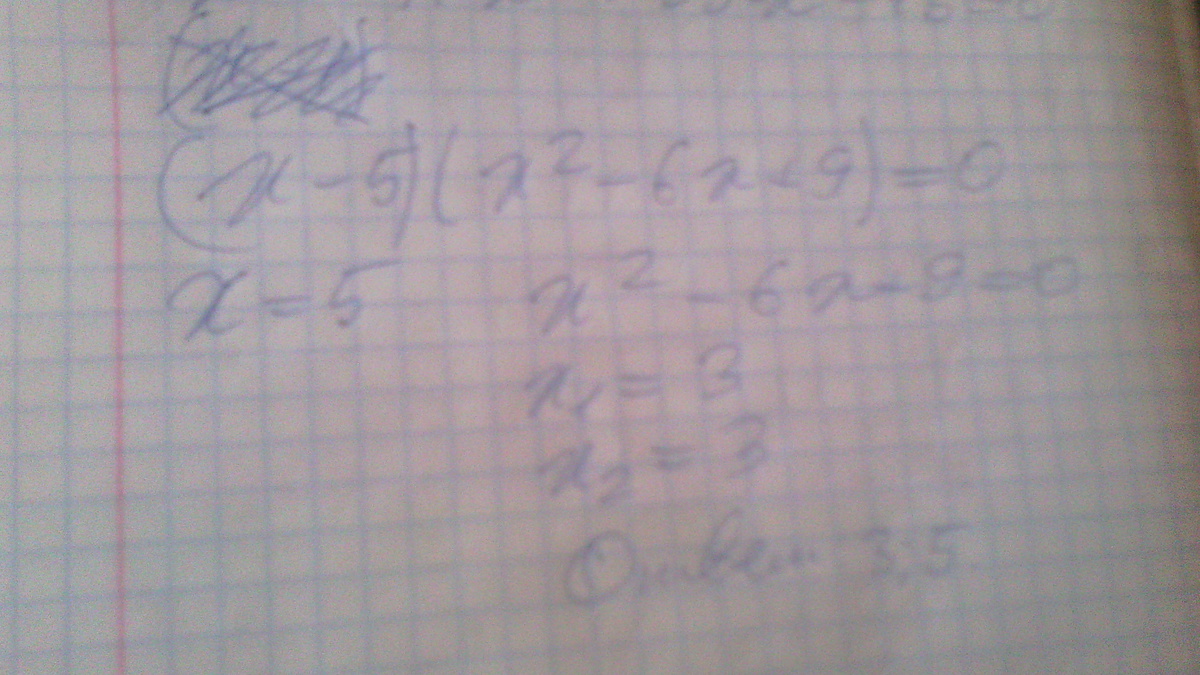 (x - 5)(x² - 6x + 9) = 0
x = 5 x² - 6x + 9 = 0
x₁ = 3
x₂ = 3
Ответ 3; 5.